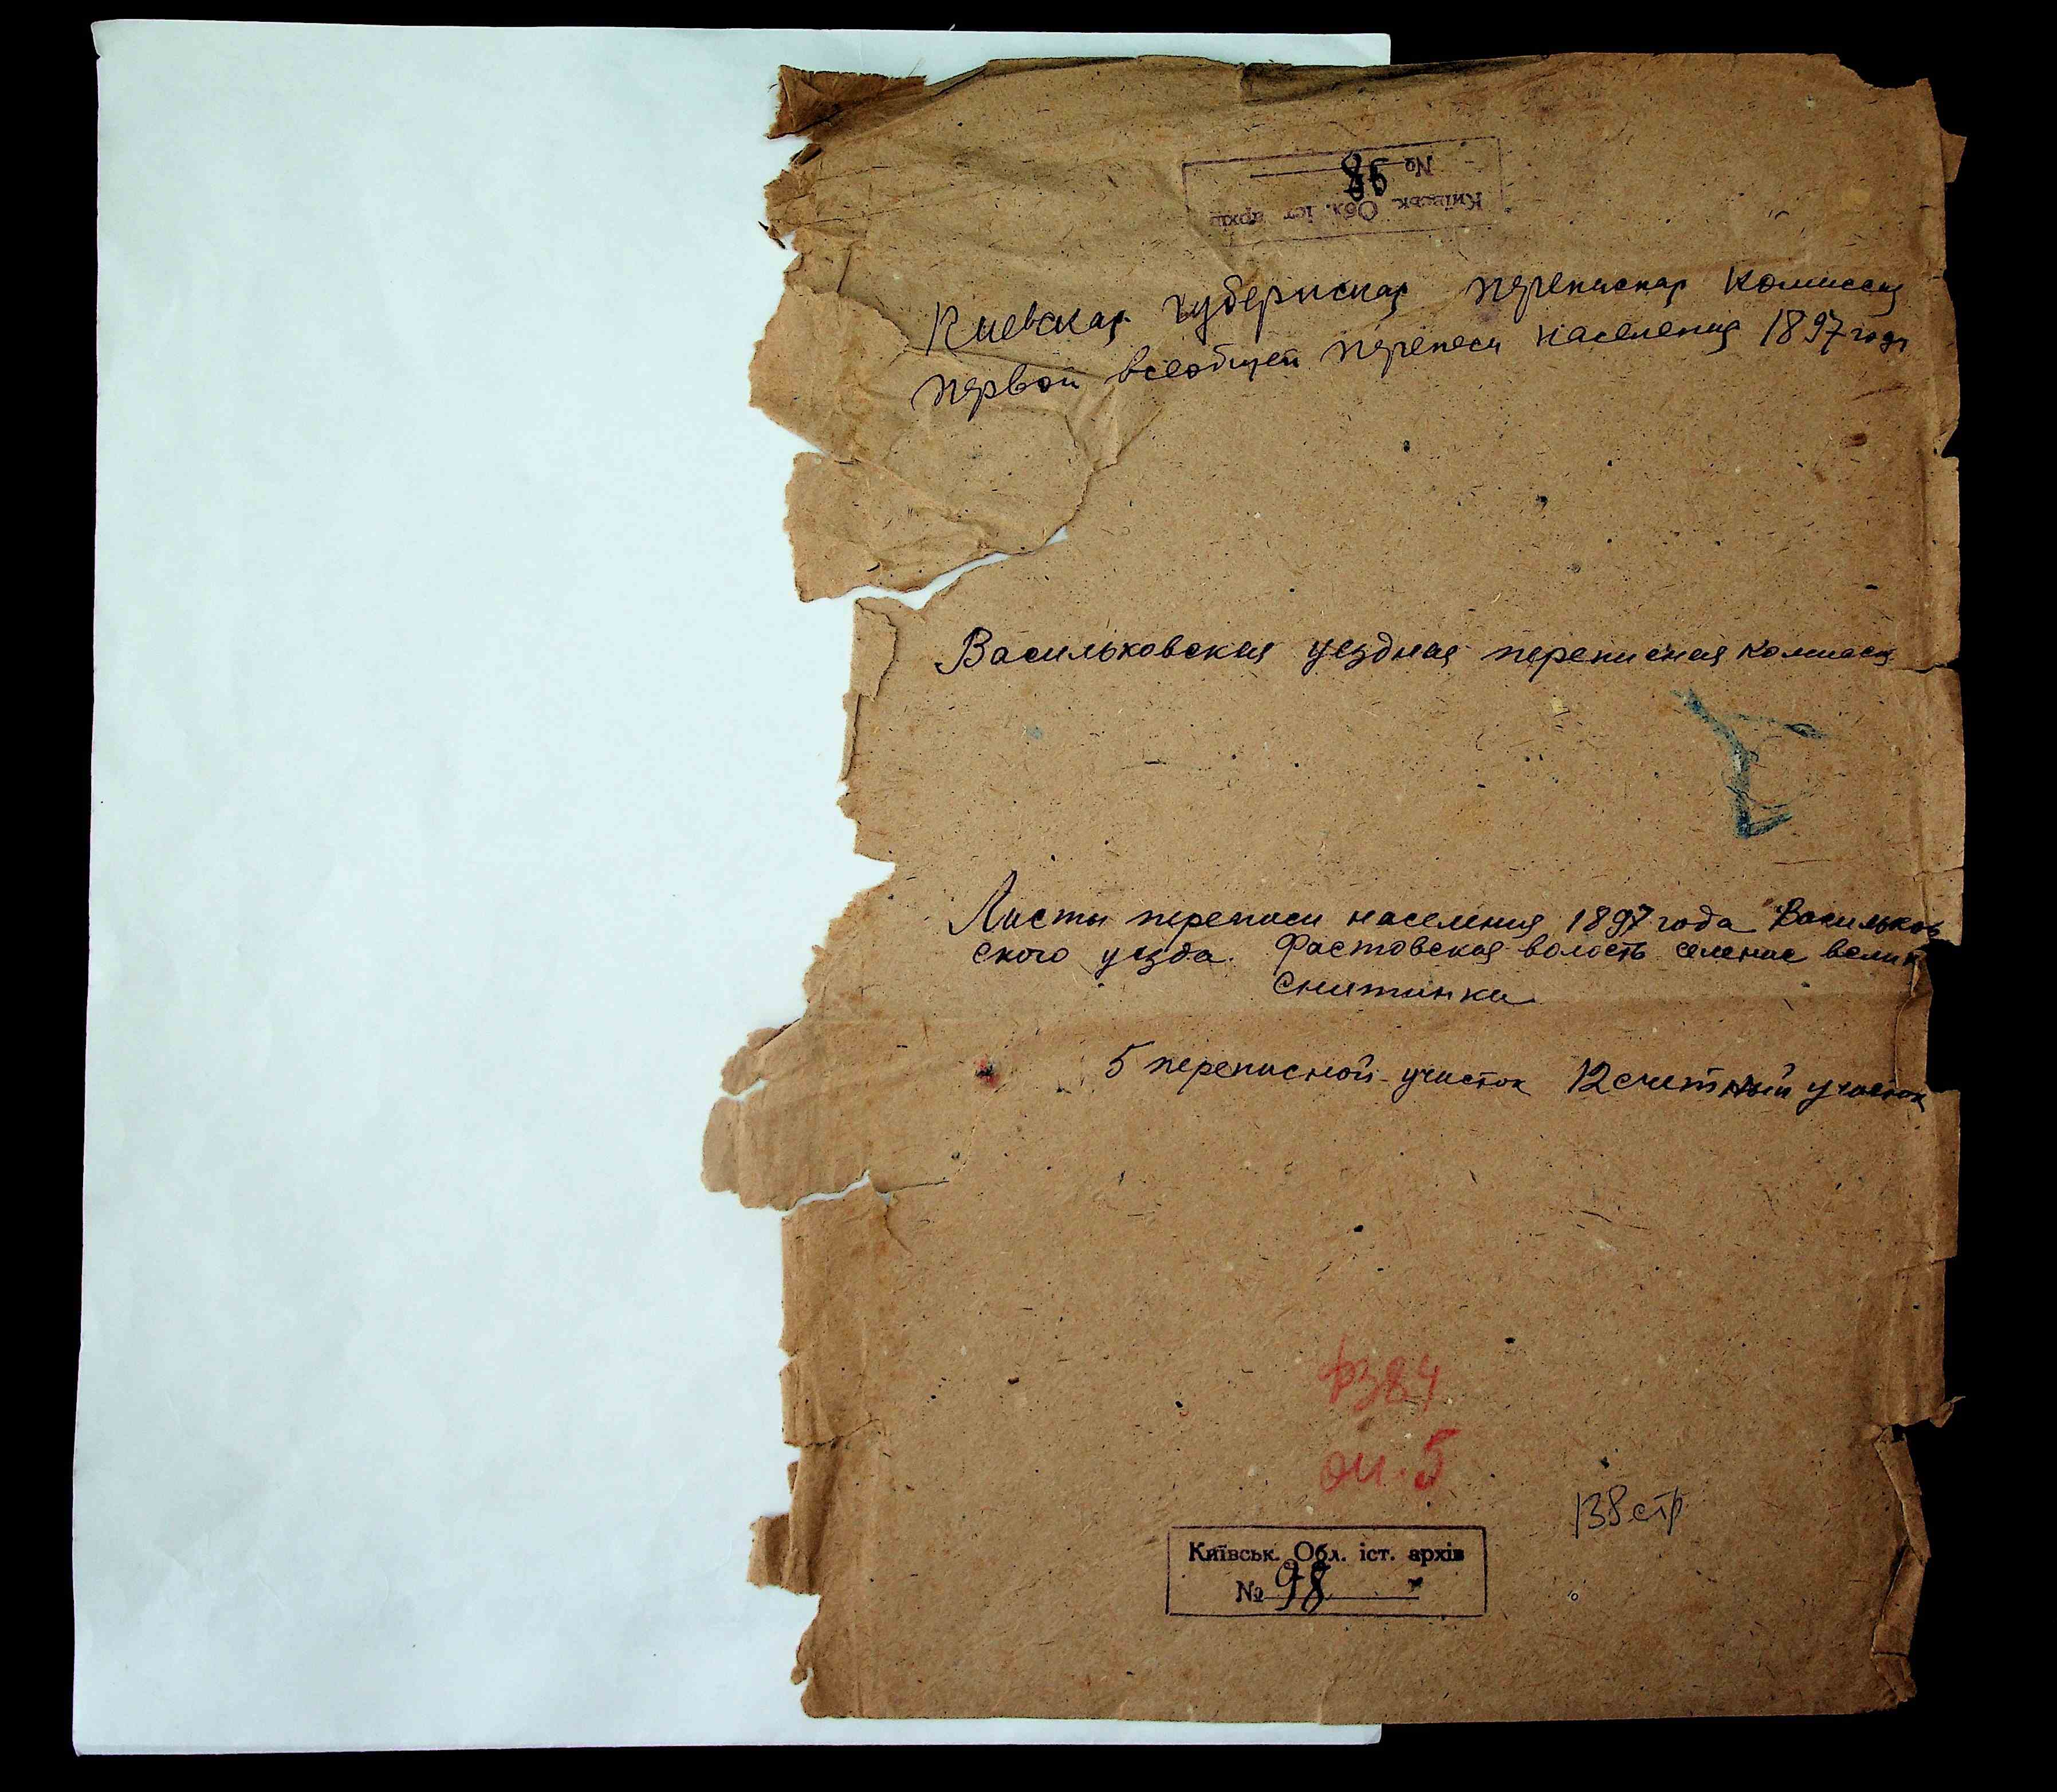 Київськ. Обл. іст. архів
№ 98
Киевская губернская переписная комиссия
первой всеобщей переписи населения 1897 года
Васильковская уездная переписная комиссия
Листы переписи населения 1897 года Васильков
ского уезда. Фастовская волость селение велик
Снитинка
5 переписной участок 12 счетный участок
ф384
оп. 5
138 стр
Київськ. Обл. іст. архів
№ 98